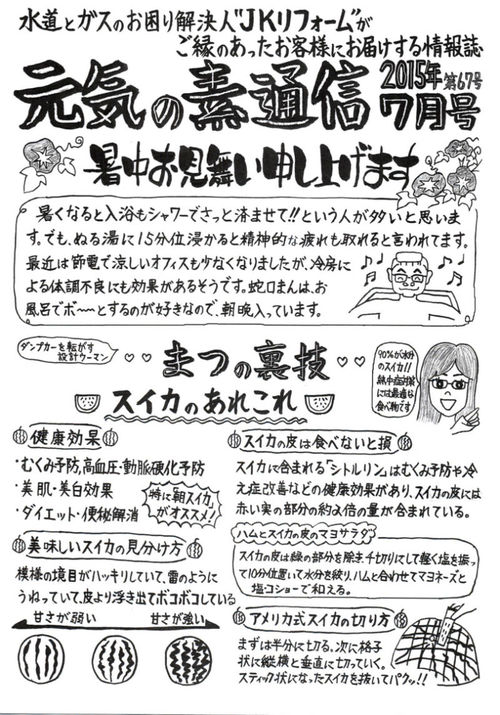 水道とガスのお困り解決人"JKリフォーム"が
ご縁のあったお客様にお届けする情報誌
元気の素通信
2015年 第67号
7月号
暑中お見舞い申し上げます
暑くなると入浴もシャワーでさっと済ませて!!という人が多いと思いま
す。でも、ぬる湯に15分位浸かると精神的な疲れも取れると言われてます。
最近は節電で涼しいオフィスも少なくなりましたが、冷房に
よる体調不良にも効果があるそうです。蛇口まんは、お
風呂でボ〜〜とするのが好きなので、朝晩入っています。
ダンプカーを転がす
設計ウーマン
まつの裏技
スイカのあれこれ
90%が水分
のスイカ!!
熱中症対策
には最適な
食べ物です
健康効果
・むくみ予防,高血圧・動脈硬化予防
・美肌・美白効果
・ダイエット・便秘解消
特に朝スイカ
がオススメ!
美味しいスイカの見分け方
模様の境目がハッキリしていて、雷のように
うねっていて、皮より浮き出てボコボコしている
甘さが弱い 甘さが強い
スイカの皮は食べないと損
スイカに含まれる「シトルリン」はむくみ予防や冷
え症改善などの健康効果があり、スイカの皮には
赤い実の部分の約2倍の量が含まれている。
ハムとスイカの皮のマヨサラダ
スイカの皮は緑の部分を除き、千切りにして軽く塩を振っ
て10分位置いて水分を絞り、ハムと合わせてマヨネーズと
塩・コショーで和える。
アメリカ式スイカの切り方
まずは半分に切る。次に格子
状に縦横と垂直に切っていく。
スティック状になったスイカを抜いてパクッ!!